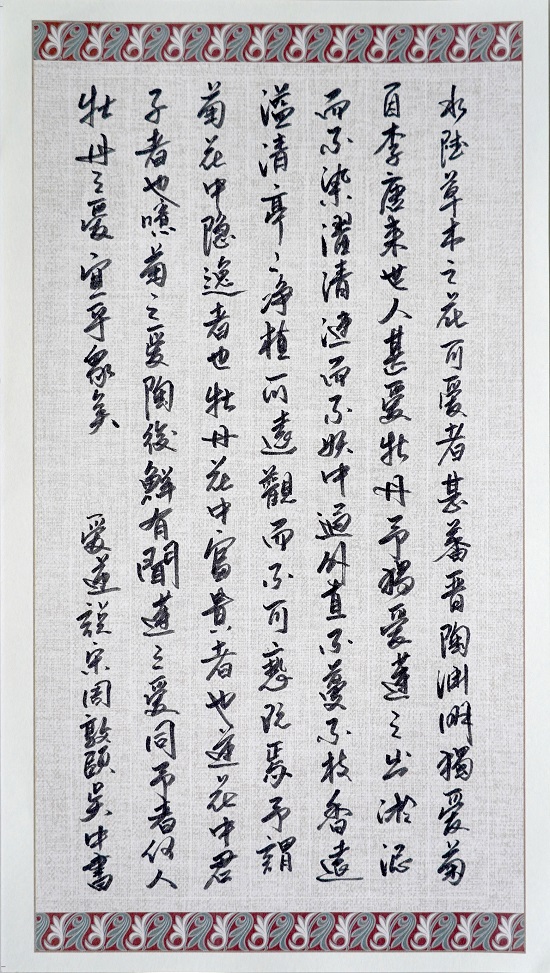 水陸草木之花可爱者甚蕃晋陶渊明獨爱菊
自李唐来世人甚爱牡丹予獨爱蓮之出淤泥
而不染濯清漣而不妖中通外直不蔓不枝香遠
溢清亭〻净植可遠觀而不可褻玩焉予謂
菊花中隐逸者也牡丹花中富貴者也蓮花中君
子者也噫菊之爱陶後鮮有聞蓮之爱同予者何人
牡丹之爱宜乎众矣
爱蓮説宋周敦頤吴中書